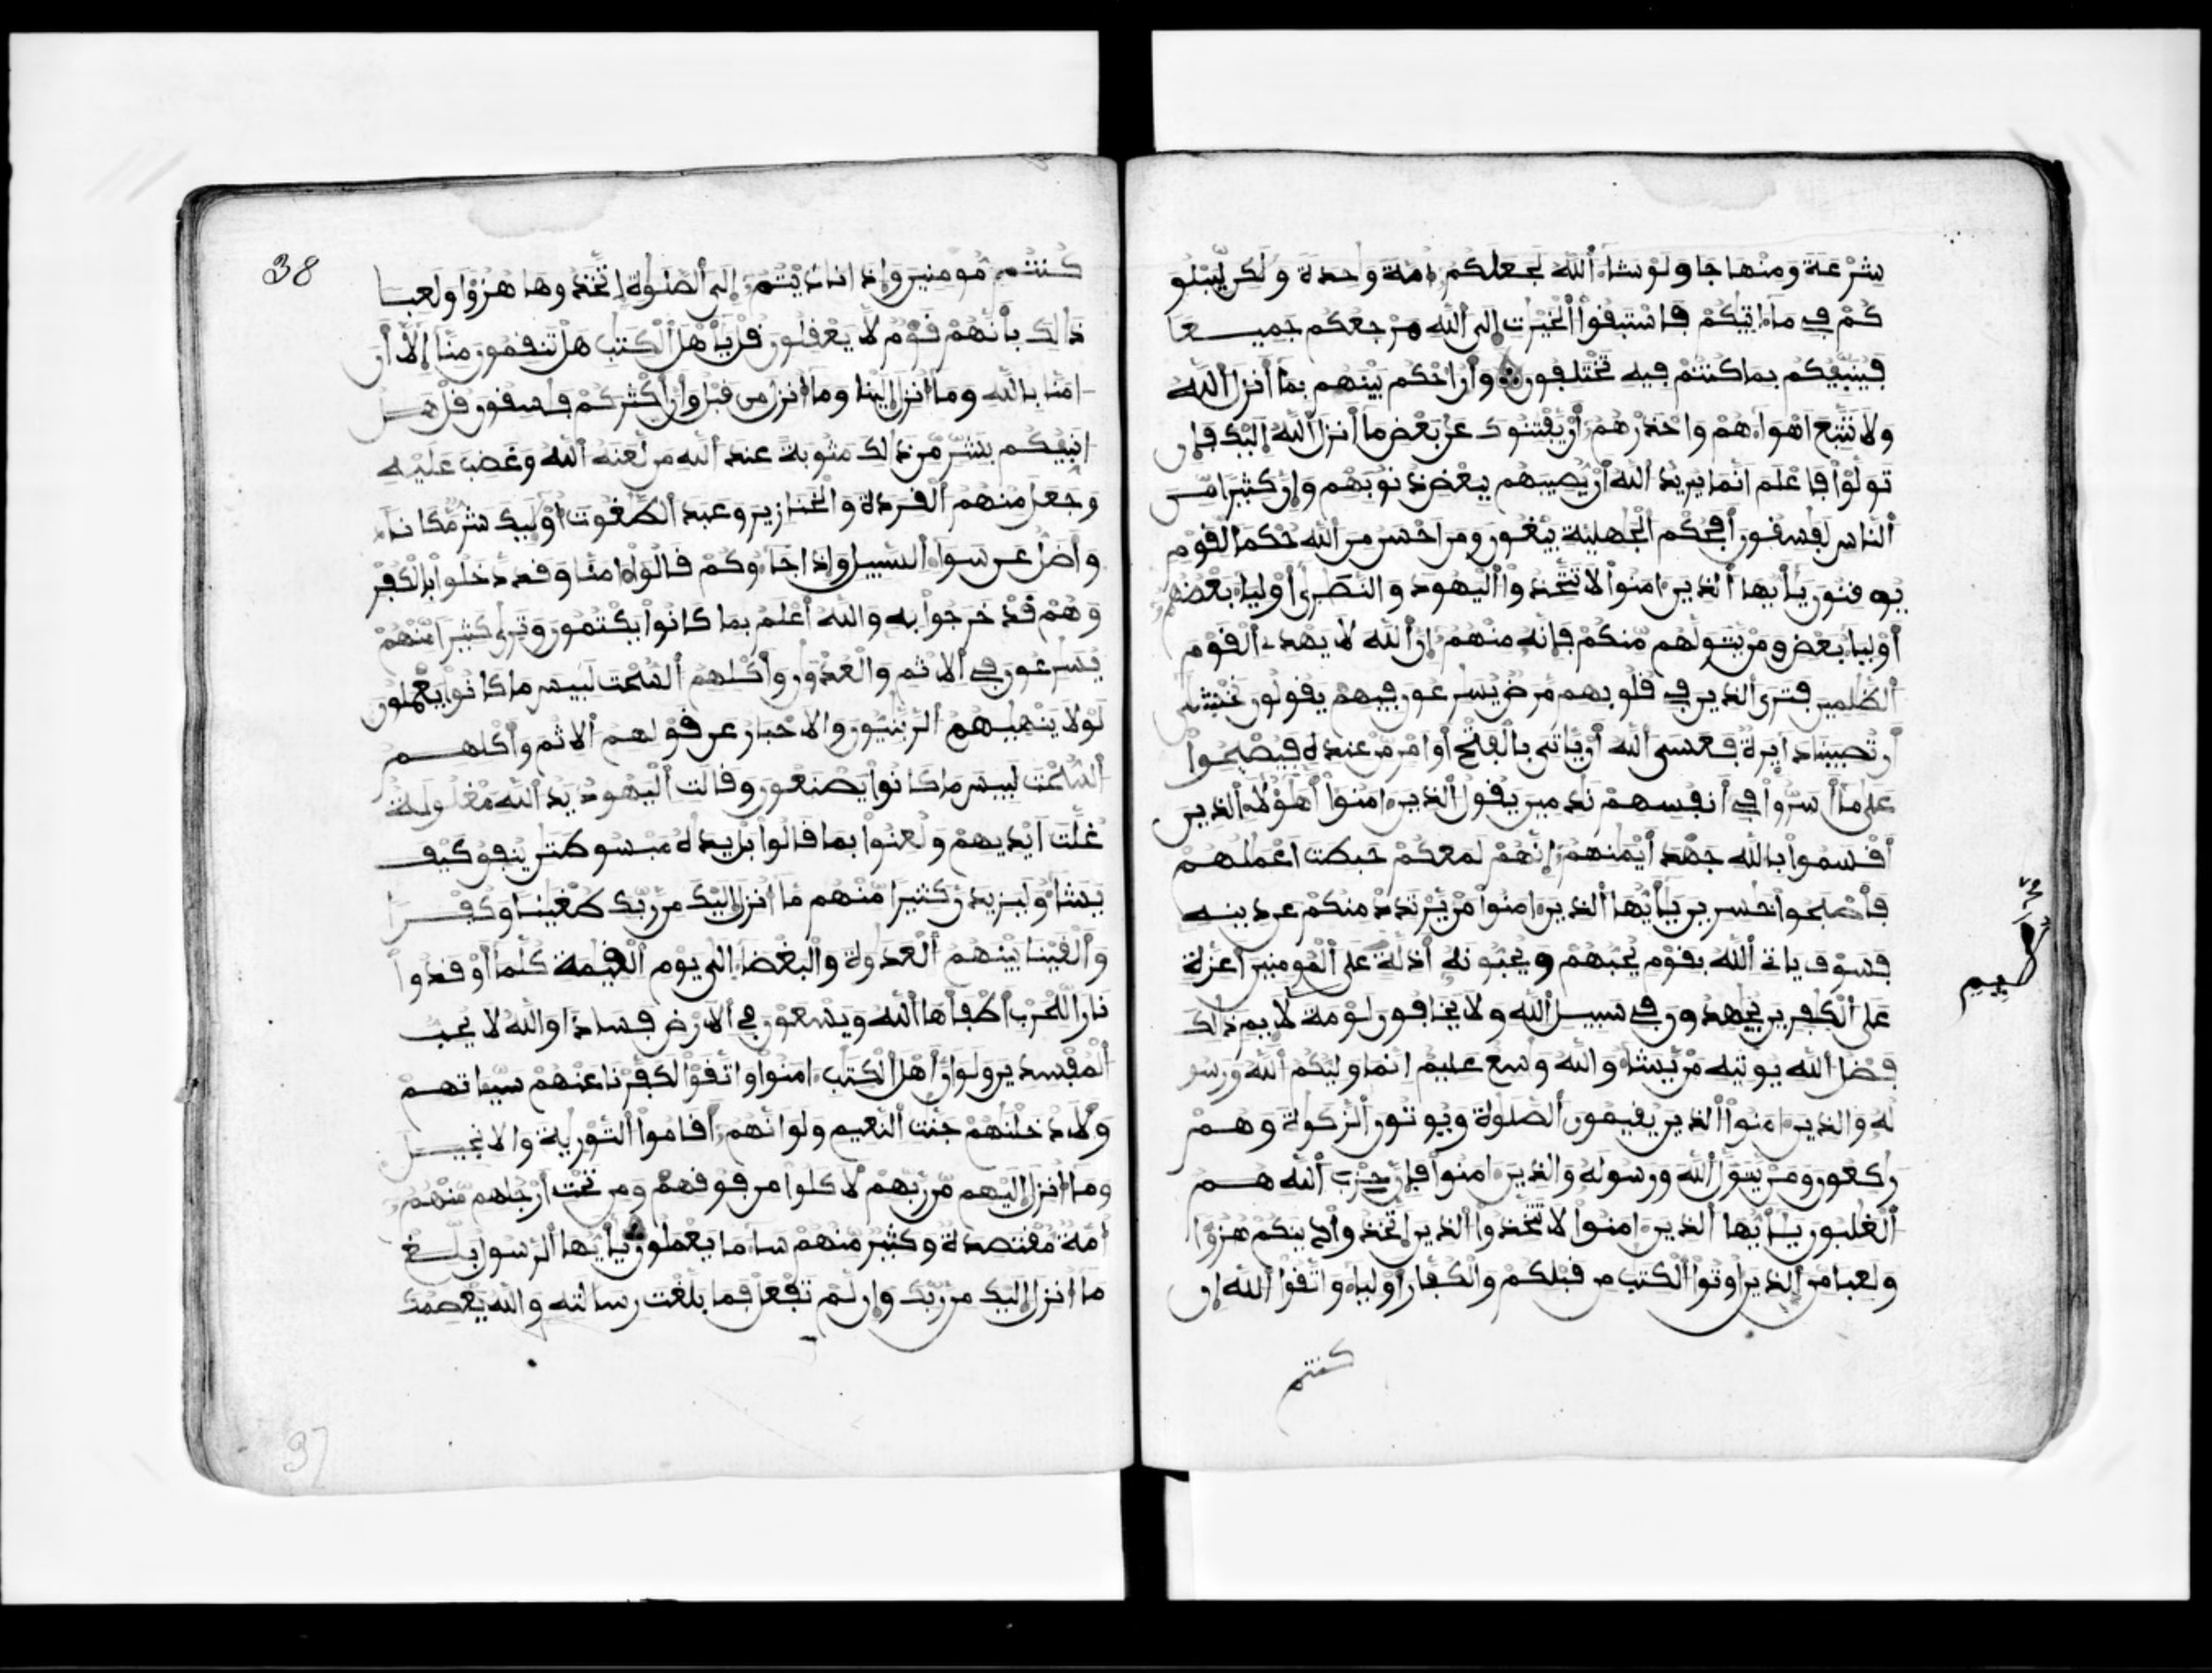 شِرْعَةً وَمِنْهَاجًا وَلَوْ شَاءَ اللَّهُ لَجَعَلَكُمْ أُمَّةً وَاحِدَةً وَلَكِن لِّيَبْلُو
كُمْ فِي مَا ءَاتَيكُمْ فَاسْتَبِقُوا الْخَيْرَتِ إِلَى اللَّهِ مَرْجِعُكُمْ جَمِيعًا
فَيُنَبِّئُكُم بِمَا كُنتُمْ فِيهِ تَخْتَلِفُونَ وَأَنُ احْكُم بَيْنَهُم بِمَا أَنزَلَ اللَّهُ
وَلَا تَتَّبِعَ اهْوَاءَهُمْ وَاحْذَرْهُمْ أَنْ يَّفْتِنُوكَ عَن بَعْضِ مَا أَنزَلَ اللَّهُ إِلَيْكَ فَإِن
تَوَلَّوْا فَاعْلَمَ انَّمَا يُرِيدُ اللَّهُ أَنْ يُّصِيبَهُم بِبَعْضِ ذُنُوبِهِمْ وَإِنَّ كَثِيرًا مِّنَ
النَّاسِ لَفَسِقُونَ أَفَحُكْمَ الْجَهِلِيَّةِ يَبْغُونَ وَمَنَ احْسَنُ مِنَ اللَّهِ حُكْمًا لِّقَوْمٍ
يُوقِنُونَ يَأَيُّهَا الَّذِينَ ءَامَنُوا لَا تَتَّخِذُوا الْيَهُودَ وَالنَّصَرَى أَوْلِيَاءَ بَعْضُهُمُ
أَوْلِيَاءُ بَعْضٍ وَمَنْ يَّتَوَلَّهُم مِّنكُمْ فَإِنَّهُ مِنْهُمُ إِنَّ اللَّهَ لَا يَهْدِي الْقَوْمَ
الظَّلِمِينَ فَتَرَى الَّذِينَ فِي قُلُوبِهِم مَّرَضٌ يُسَرِعُونَ فِيهِمْ يَقُولُونَ نَخْشَى
أَن تُصِيبَنَا دَايِرَةٌ فَعَسَى اللَّهُ أَنْ يَّاتِيَ بِالْفَتْحِ أَوَ امْرٍ مِّنْ عِندِهِ فَيُصْبِحُوا
عَلَى مَا أَسَرُّوا فِي أَنفُسِهِمْ نَدِمِينَ يَقُولُ الَّذِينَ ءَامَنُوا أَهَؤُلَاءِ الَّذِينَ
أَقْسَمُوا بِاللَّهِ جَهْدَ أَيْمَنِهِمُ إِنَّهُمْ لَمَعَكُمْ حَبِطَتَ اعْمَلُهُمْ
فَأَصْبَحُوا خَسِرِينَ يَأَيُّهَا الَّذِينَ ءَامَنُوا مَنْ يَّرْتَدِدْ مِنكُمْ عَن دِينِهِ
فَسَوْفَ يَاتِ اللَّهُ بِقَوْمٍ يُحِبُّهُمْ وَيُحِبُّونَهُ أَذِلَّةٍ عَلَى الْمُومِنِينَ أَعِزَّةٍ
عَلَى الْكَفِرِينَ يُجَهِدُونَ فِي سَبِيلِ اللَّهِ وَلَا يَخَافُونَ لَوْمَةَ لَايِمٍ ذَلِكَ
فَضْلُ اللَّهِ يُوتِيهِ مَنْ يَّشَاءُ وَاللَّهُ وَسِعٌ عَلِيمٌ إِنَّمَا وَلِيُّكُمُ اللَّهُ وَرَسُو
لُهُ وَالَّذِينَ ءَامَنُوا الَّذِينَ يُقِيمُونَ الصَّلَوةَ وَيُوتُونَ الزَّكَوةَ وَهُمْ
رَكِعُونَ وَمَنْ يَّتَوَلَّ اللَّهَ وَرَسُولَهُ وَالَّذِينَ ءَامَنُوا فَإِنَّ حِزْبَ اللَّهِ هُمُ
الْغَلِبُونَ يَأَيُّهَا الَّذِينَ ءَامَنُوا لَا تَتَّخِذُوا الَّذِينَ اتَّخَذُوا دِينَكُمْ هُزُؤًا
وَلَعِبًا مِّنَ الَّذِينَ أُوتُوا الْكِتَبَ مِن قَبْلِكُمْ وَالْكُفَّارَ أَوْلِيَاءَ وَاتَّقُوا اللَّهَ إِن
كنتم
38
كُنتُم مُّومِنِينَ وَإِذَا نَادَيْتُمُ إِلَى الصَّلَوةِ اتَّخَذُوهَا هُزُؤًا وَلَعِبًا
ذَلِكَ بِأَنَّهُمْ قَوْمٌ لَّا يَعْقِلُونَ قُلْ يَأَهْلَ الْكِتَبِ هَلْ تَنقِمُونَ مِنَّا إِلَّا أَنَ
ءَامَنَّا بِاللَّهِ وَمَا أُنزِلَ إِلَيْنَا وَمَا أُنزِلَ مِن قَبْلُ وَأَنَّ أَكْثَرَكُمْ فَسِقُونَ قُلْ هَلُ
أُنَبِّئُكُم بِشَرٍّ مِّن ذَلِكَ مَثُوبَةً عِندَ اللَّهِ مَن لَّعَنَهُ اللَّهُ وَغَضِبَ عَلَيْهِ
وَجَعَلَ مِنْهُمُ الْقِرَدَةَ وَالْخَنَازِيرَ وَعَبَدَ الطَّغُوتَ أُوْلَئِكَ شَرٌّ مَّكَانًا
وَأَضَلُّ عَن سَوَاءِ السَّبِيلِ وَإِذَا جَاءُوكُمْ قَالُوا ءَامَنَّا وَقَد دَّخَلُوا بِالْكُفْرِ
وَهُمْ قَدْ خَرَجُوا بِهِ وَاللَّهُ أَعْلَمُ بِمَا كَانُوا يَكْتُمُونَ وَتَرَى كَثِيرًا مِّنْهُمْ
يُسَرِعُونَ فِي الِاثْمِ وَالْعُدْوَنِ وَأَكْلِهِمُ السُّحْتَ لَبِيسَ مَا كَانُوا يَعْمَلُونَ
لَوْلَا يَنْهَيهُمُ الرَّبَّنِيُّونَ وَالَاحْبَارُ عَن قَوْلِهِمُ الِاثْمَ وَأَكْلِهِمُ
السُّحْتَ لَبِيسَ مَا كَانُوا يَصْنَعُونَ وَقَالَتِ الْيَهُودُ يَدُ اللَّهِ مَغْلُولَةٌ
غُلَّتَ ايْدِيهِمْ وَلُعِنُوا بِمَا قَالُوا بَلْ يَدَهُ مَبْسُوطَتَنِ يُنفِقُ كَيْفَ
يَشَاءُ وَلَيَزِيدَنَّ كَثِيرًا مِّنْهُم مَّا أُنزِلَ إِلَيْكَ مِن رَّبِّكَ طُغْيَنًا وَكُفْرًا
وَأَلْقَيْنَا بَيْنَهُمُ الْعَدَوَةَ وَالْبَغْضَاءَ إِلَى يَوْمِ الْقِيَمَةِ كُلَّمَا أَوْقَدُوا
نَارًا لِّلْحَرْبِ أَطْفَأَهَا اللَّهُ وَيَسْعَوْنَ فِي الَارْضِ فَسَادًا وَاللَّهُ لَا يُحِبُّ
الْمُفْسِدِينَ وَلَوَ انَّ أَهْلَ الْكِتَبِ ءَامَنُوا وَاتَّقَوْا لَكَفَّرْنَا عَنْهُمْ سَيِّئَاتِهِمْ
وَلَأَدْخَلْنَهُمْ جَنَّتِ النَّعِيمِ وَلَوَ انَّهُمُ أَقَامُوا التَّوْرَيةَ وَالِانجِيلَ
وَمَا أُنزِلَ إِلَيْهِم مِّن رَّبِّهِمْ لَأَكَلُوا مِن فَوْقِهِمْ وَمِن تَحْتِ أَرْجُلِهِم مِّنْهُمُ
أُمَّةٌ مُّقْتَصِدَةٌ وَكَثِيرٌ مِّنْهُمْ سَاءَ مَا يَعْمَلُونَ يَأَيُّهَا الرَّسُولُ بَلِّغْ
مَا أُنزِلَ إِلَيْكَ مِن رَّبِّكَ وَإِن لَّمْ تَفْعَلْ فَمَا بَلَّغْتَ رِسَالَتِهِ وَاللَّهُ يَعْصِمُكَ
37